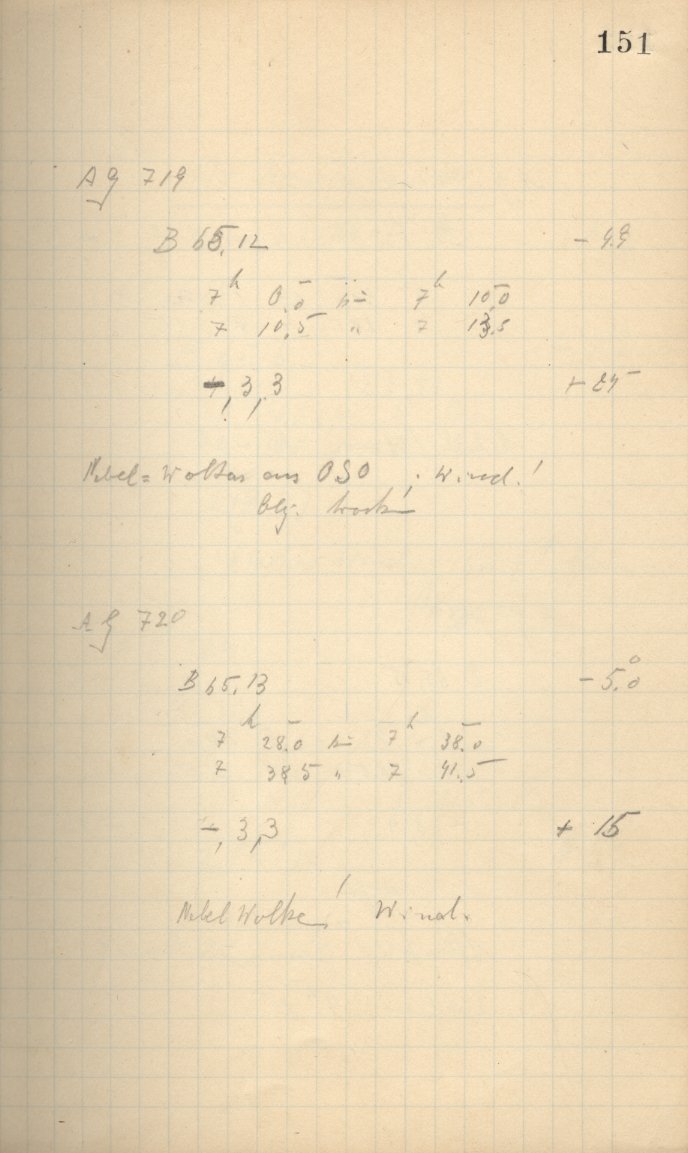 151
AG 719
B 65.12 - 4.9
7h 0.0 bis 7h 10.0
7 10.5 " 7 13.5
, 3, 3 +
Nebel= Wolken aus OSO, Wind!
AG 720
B 65.13 - 5.0
7h 28.0 bis 7h 38.0
7 38 5 " 7 41.5
-, 3, 3 + 15
Nebel Wolken! Wind.